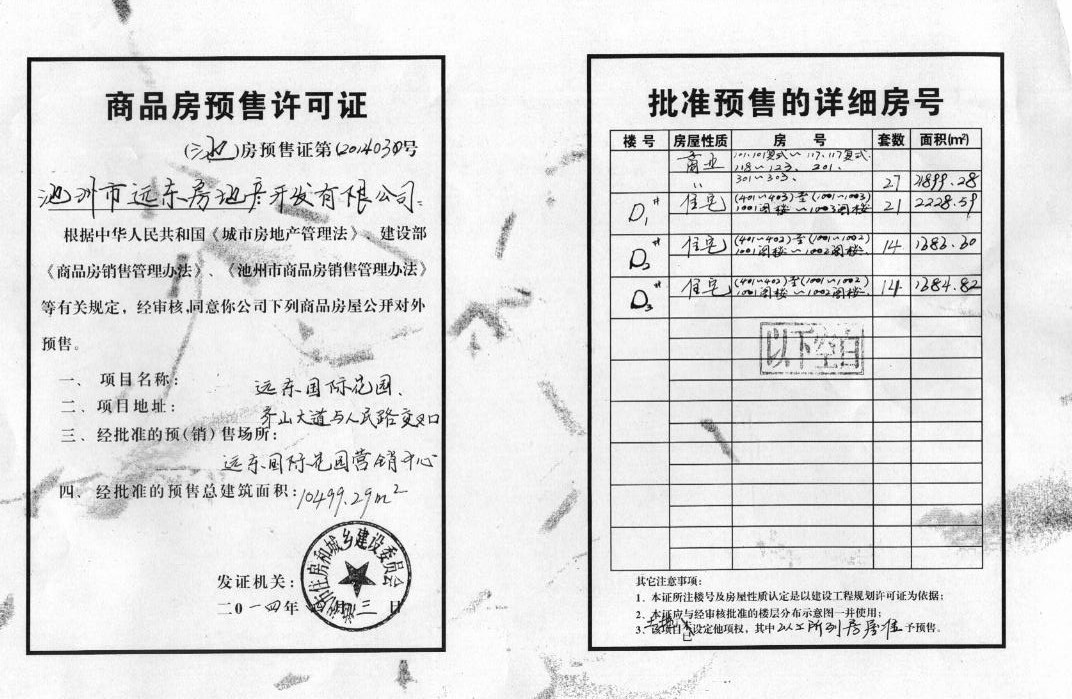 商品房预售许可证
(池)房预售证第(2014038)号
池州市远东房地产开发有限公司:
根据中华人民共和国《城市房地产管理法》、建设部
《商品房销售管理办法》、《池州市商品房销售管理办法》
等有关规定，经审核,同意你公司下列商品房屋公开对外
预售。
一、项目名称: 远东国际花园、
二、项目地址: 齐山大道与人民路交叉口
三、经批准的预(销)售场所:
远东国际花园营销中心
四、经批准的预售总建筑面积: 10499.29m²
住房和城乡建设委员会
发证机关:
二0一四年 月 三 日
批准预售的详细房号
楼号 房屋性质 房号 套数 面积(m²)
商业 101.101复式~117.117复式.
118~123、201.
〃 301~303. 27 899.28
D1# 住宅 (401~403)至(1001~1003) 21 2228.59
1001阁楼~1003阁楼
D2# 住宅 (401~402)至(1001~1002) 14 1383.30
1001阁楼~1002阁楼.
D3# 住宅 (401~402)至(1001~1002) 14 1384.82
1001阁楼~1002阁楼.
以下空白
其它注意事项:
1、本证所注楼号及房屋性质认定是以建设工程规划许可证为依据;
2、本证应与经审核批准的楼层分布示意图一并使用;
3、该项目土地已设定他项权，其中以上所列房屋准予预售。